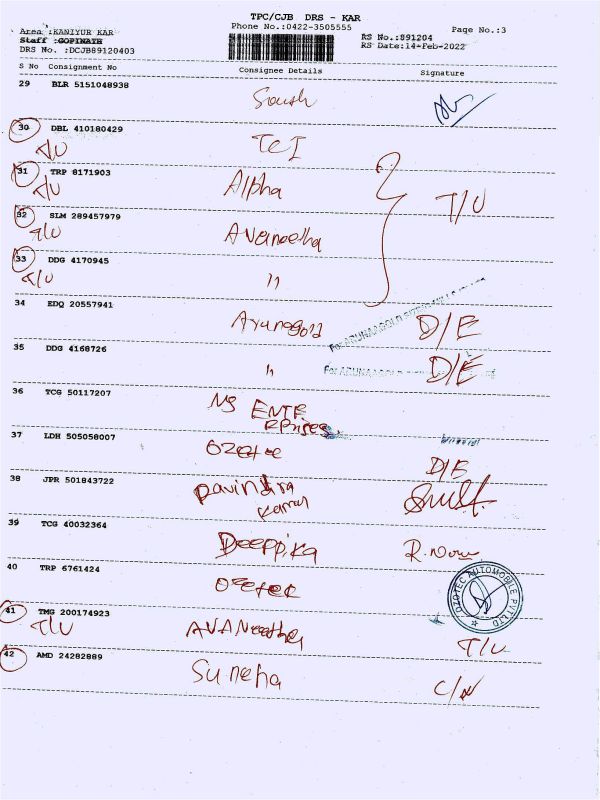 TPC/CJB DRS - KAR
Phone No.:0422-3505555
Page No.:3
Area :KANIYUR KAR
Staff :GOPINATH
DRS No. :DCJB89120403
RS No.:891204
RS Date:14-Feb-2022
S No Consignment No Consignee Details Signature
29 BLR 5151048938 South
30 DBL 410180429 TCI
T/U
31 TRP 8171903 Alpha
T/U
T/U
32 SLM 289457979 Avaneetha
T/U
33 DDG 4170945 "
T/U
34 EDQ 20557941 Arunagold D/E
For ARUNAAGOLD
35 DDG 4168726 " D/E
For ARUNAAGOLD
36 TCG 50117207 MS ENTE
RPrises
37 LDH 505058007 OZETEC D/E
38 JPR 501843722 Ravindra
39 TCG 40032364 Deeppika
40 TRP 6761424 OZETEC
OZOTEC AUTOMOBILE PVT LTD
41 TMG 200174923 AVANeetha T/U
T/U
42 AMD 24282889 Suneha C/N